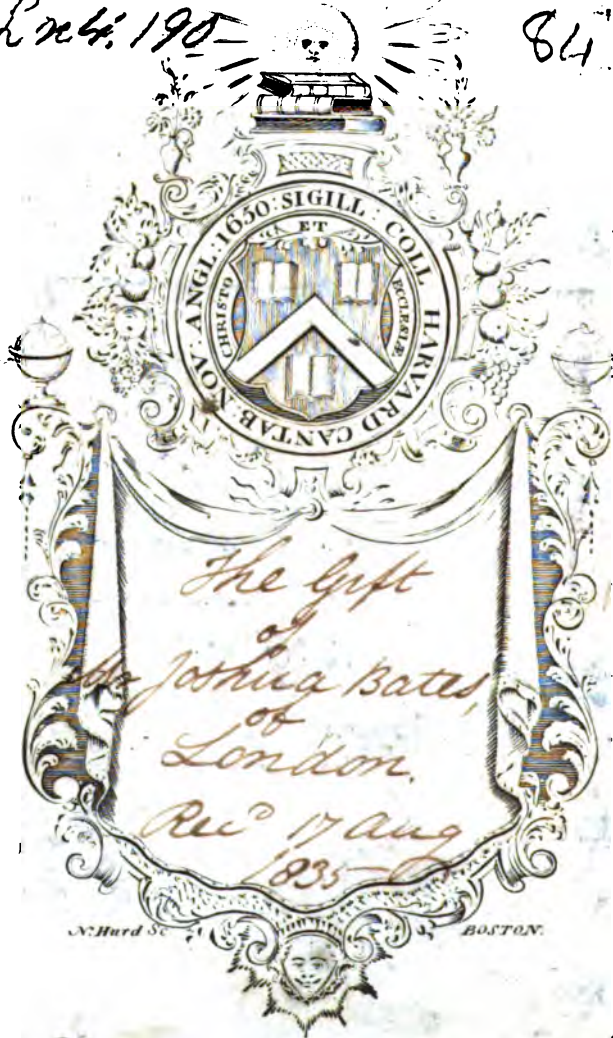 190
84
SIGILL : COLL HARVARD CANTAB : NOV ANGL : 1650 :
CHRISTO ET ECCLESIÆ
The Gift
of
Joshua Bates,
of
London.
Rec^d 17 Aug
1835
N. Hurd Sc
BOSTON.